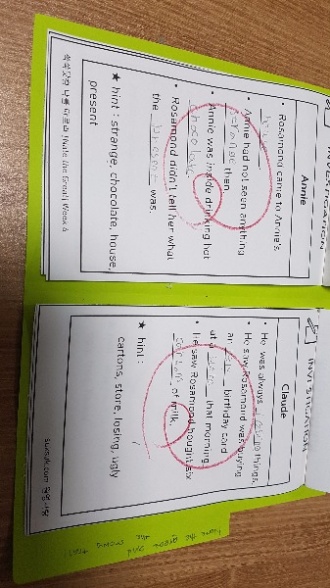 INVESTIGATION
Annie
• Rosamond came to Annie's
house
• Annie had not seen anything
strange then.
• Annie was inside drinking hot
chocolate
• Rosamond didn't tell her what
the present was.
★ hint : strange, chocolate, house,
present
[Nate the Great] Week 6
INVESTIGATION
Claude
• He was always losing things.
• He saw Rosamond was buying
an ugly birthday card
at a store that morning
• He saw Rosamond bought six
cartons of milk.
★ hint :
cartons, store, losing, ugly